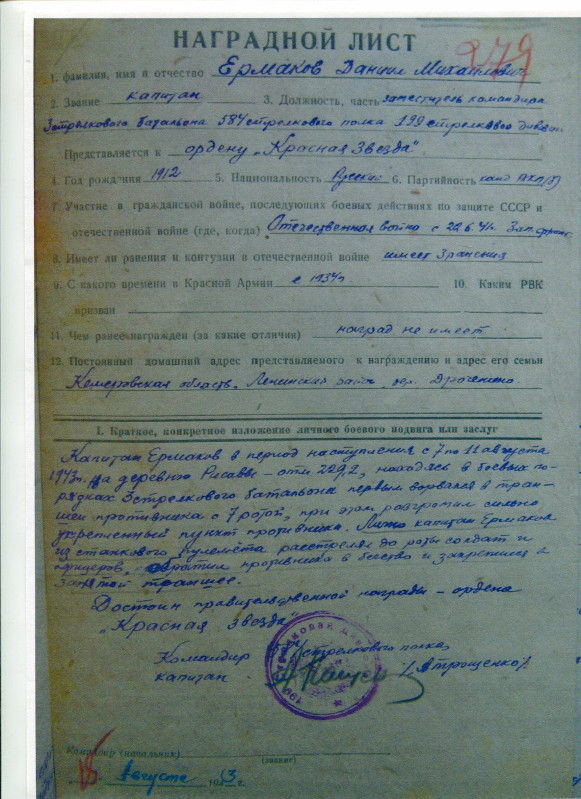 НАГРАДНОЙ ЛИСТ
279
1. фамилия, имя и отчество Ермаков Даниил Михайлович
2. Звание капитан 3. Должность, часть заместитель командира
3 стрелкового батальона 584 стрелкового полка 199 стрелковой
Представляется к ордену „Красная Звезда“
4. Год рождения 1912 5. Национальность Русский 6. Партийность канд ВКП(б)
7. Участие в гражданской войне, последующих боевых действиях по защите СССР и
отечественной войне (где, когда) Отечественная война с 22.6.41г. Зап. фронт
8. Имеет ли ранения и контузии в отечественной войне имеет 3 ранения
9. С какого времени в Красной Армии с 1934г. 10. Каким РВК
призван
11. Чем ранее награжден (за какие отличия) наград не имеет
12. Постоянный домашний адрес представляемого к награждению и адрес его семьи
Кемеровская область, Ленинский район, дер.
I. Краткое, конкретное изложение личного боевого подвига или заслуг
Капитан Ермаков в период наступления с 7 по 11 августа
1943г. на деревню – отм 229,2, находясь в боевых по-
рядках 3 стрелкового батальона первым ворвался в тран-
шеи противника с 7 ротой, при этом разгромил сильно
укрепленный пункт противника. Лично капитан Ермаков
из станкового пулемета расстрелял до роты солдат и
офицеров, обратил противника в бегство и закрепился в
занятой траншее.
Достоин правительственной награды – ордена
„Красная Звезда“
Командир стрелкового полка
капитан /Атрощенко/
Командир (начальник)
(звание)
августа 1943 г.